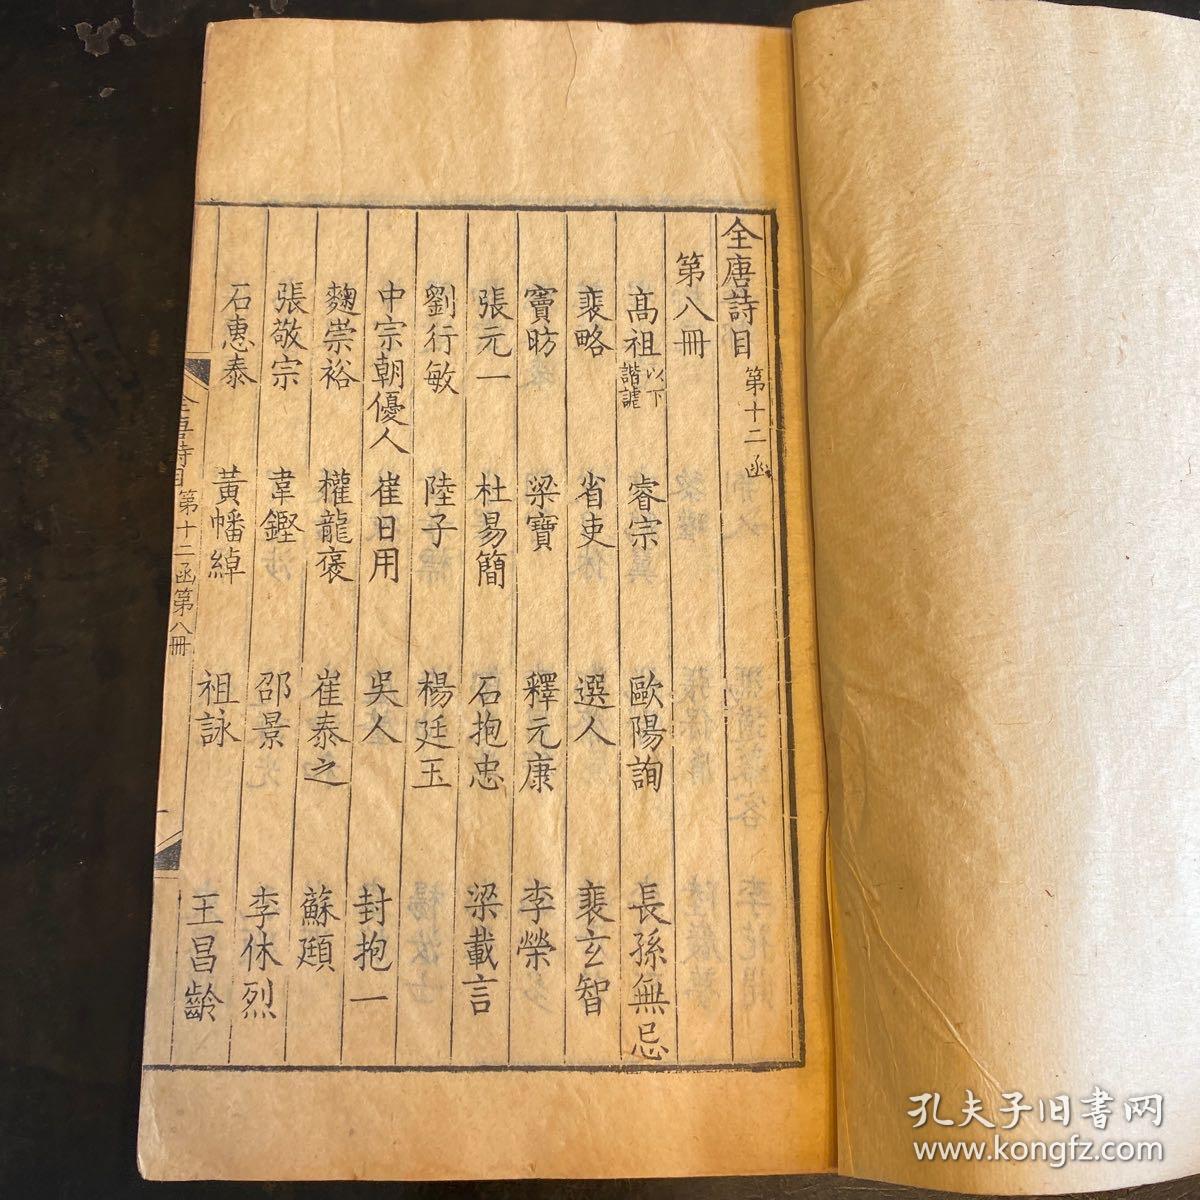 全唐詩目 第十二函
第八冊
高祖 以下諧謔 睿宗 歐陽詢 長孫無忌
裴略 省吏 選人 裴玄智
竇昉 梁寶 釋元康 李榮
張元一 杜易簡 石抱忠 梁載言
劉行敏 陸子 楊廷玉
中宗朝優人 崔日用 吳人 封抱一
麴崇裕 權龍褒 崔泰之 蘇頲
張敬宗 韋鏗 邵景 李休烈
石惠泰 黃幡綽 祖詠 王昌齡
全唐詩目 第十二函第八冊 一
孔夫子旧书网
www.kongfz.com